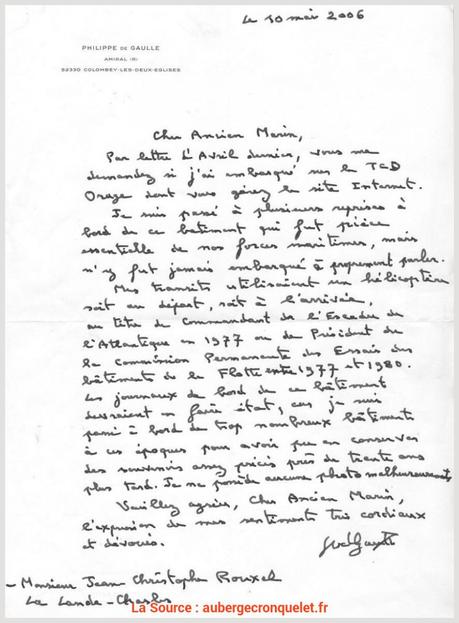 Le 10 mai 2006
PHILIPPE DE GAULLE
AMIRAL (R)
52330 COLOMBEY-LES-DEUX-EGLISES
Cher Ancien Marin,
Par lettre d'Avril dernier, vous me
demandez si j'ai embarqué sur le TCD
Orage dont vous gérez le site Internet.
Je suis passé à plusieurs reprises à
bord de ce bâtiment qui fut pièce
essentielle de nos forces maritimes, mais
n'y fut jamais embarqué à proprement parler.
Mes transits utilisaient un hélicoptère
soit au départ, soit à l'arrivée,
au titre de Commandant de l'Escadre de
l'Atlantique en 1977 ou de Président de
la Commission Permanente des Essais des
bâtiments de la Flotte entre 1977 et 1980.
Les journaux de bord de ce bâtiment
devraient en faire état, car je suis
passé à bord de trop nombreux bâtiments
à ces époques pour avoir pu en conserver
des souvenirs assez précis près de trente ans
plus tard. Je ne possède aucune photo malheureusement
Veuillez agréer, Cher Ancien Marin,
l'expression de mes sentiments très cordiaux
et dévoués.
- Monsieur Jean-Christophe Rouxel
La Lande-Chasles
La Source : aubergecronquelet.fr